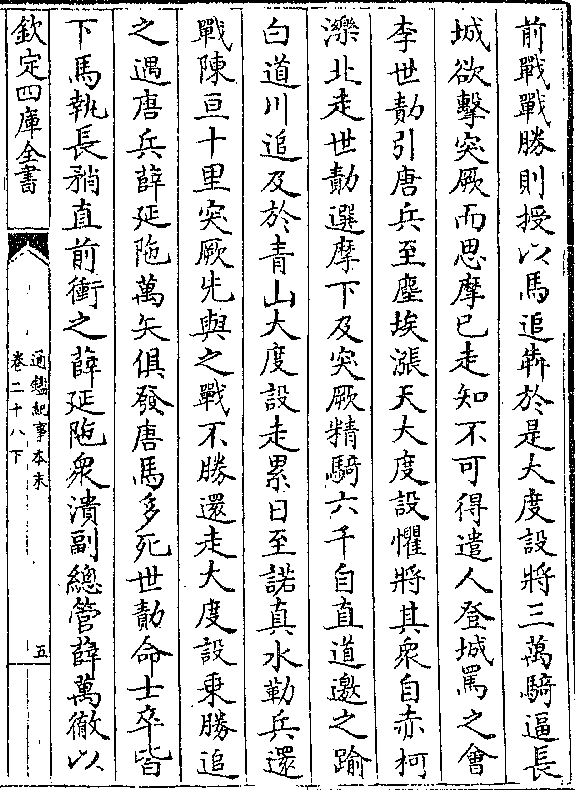 前戰戰勝則授以馬追犇於是大度設將三萬騎逼長
城欲擊突厥而思摩已走知不可得遣人登城罵之會
李世勣引唐兵至塵埃漲天大度設懼將其衆自赤柯
濼北走世勣選麾下及突厥精騎六千自直道邀之踰
白道川追及於青山大度設走累日至諾真水勒兵還
戰陳亘十里突厥先與之戰不勝還走大度設乗勝追
之遇唐兵薛延陁萬矢俱發唐馬多死世勣命士卒皆
下馬執長矟直前衝之薛延陁衆潰副總管薛萬徹以
欽定四庫全書
通鑑紀事本末
卷二十八下
五